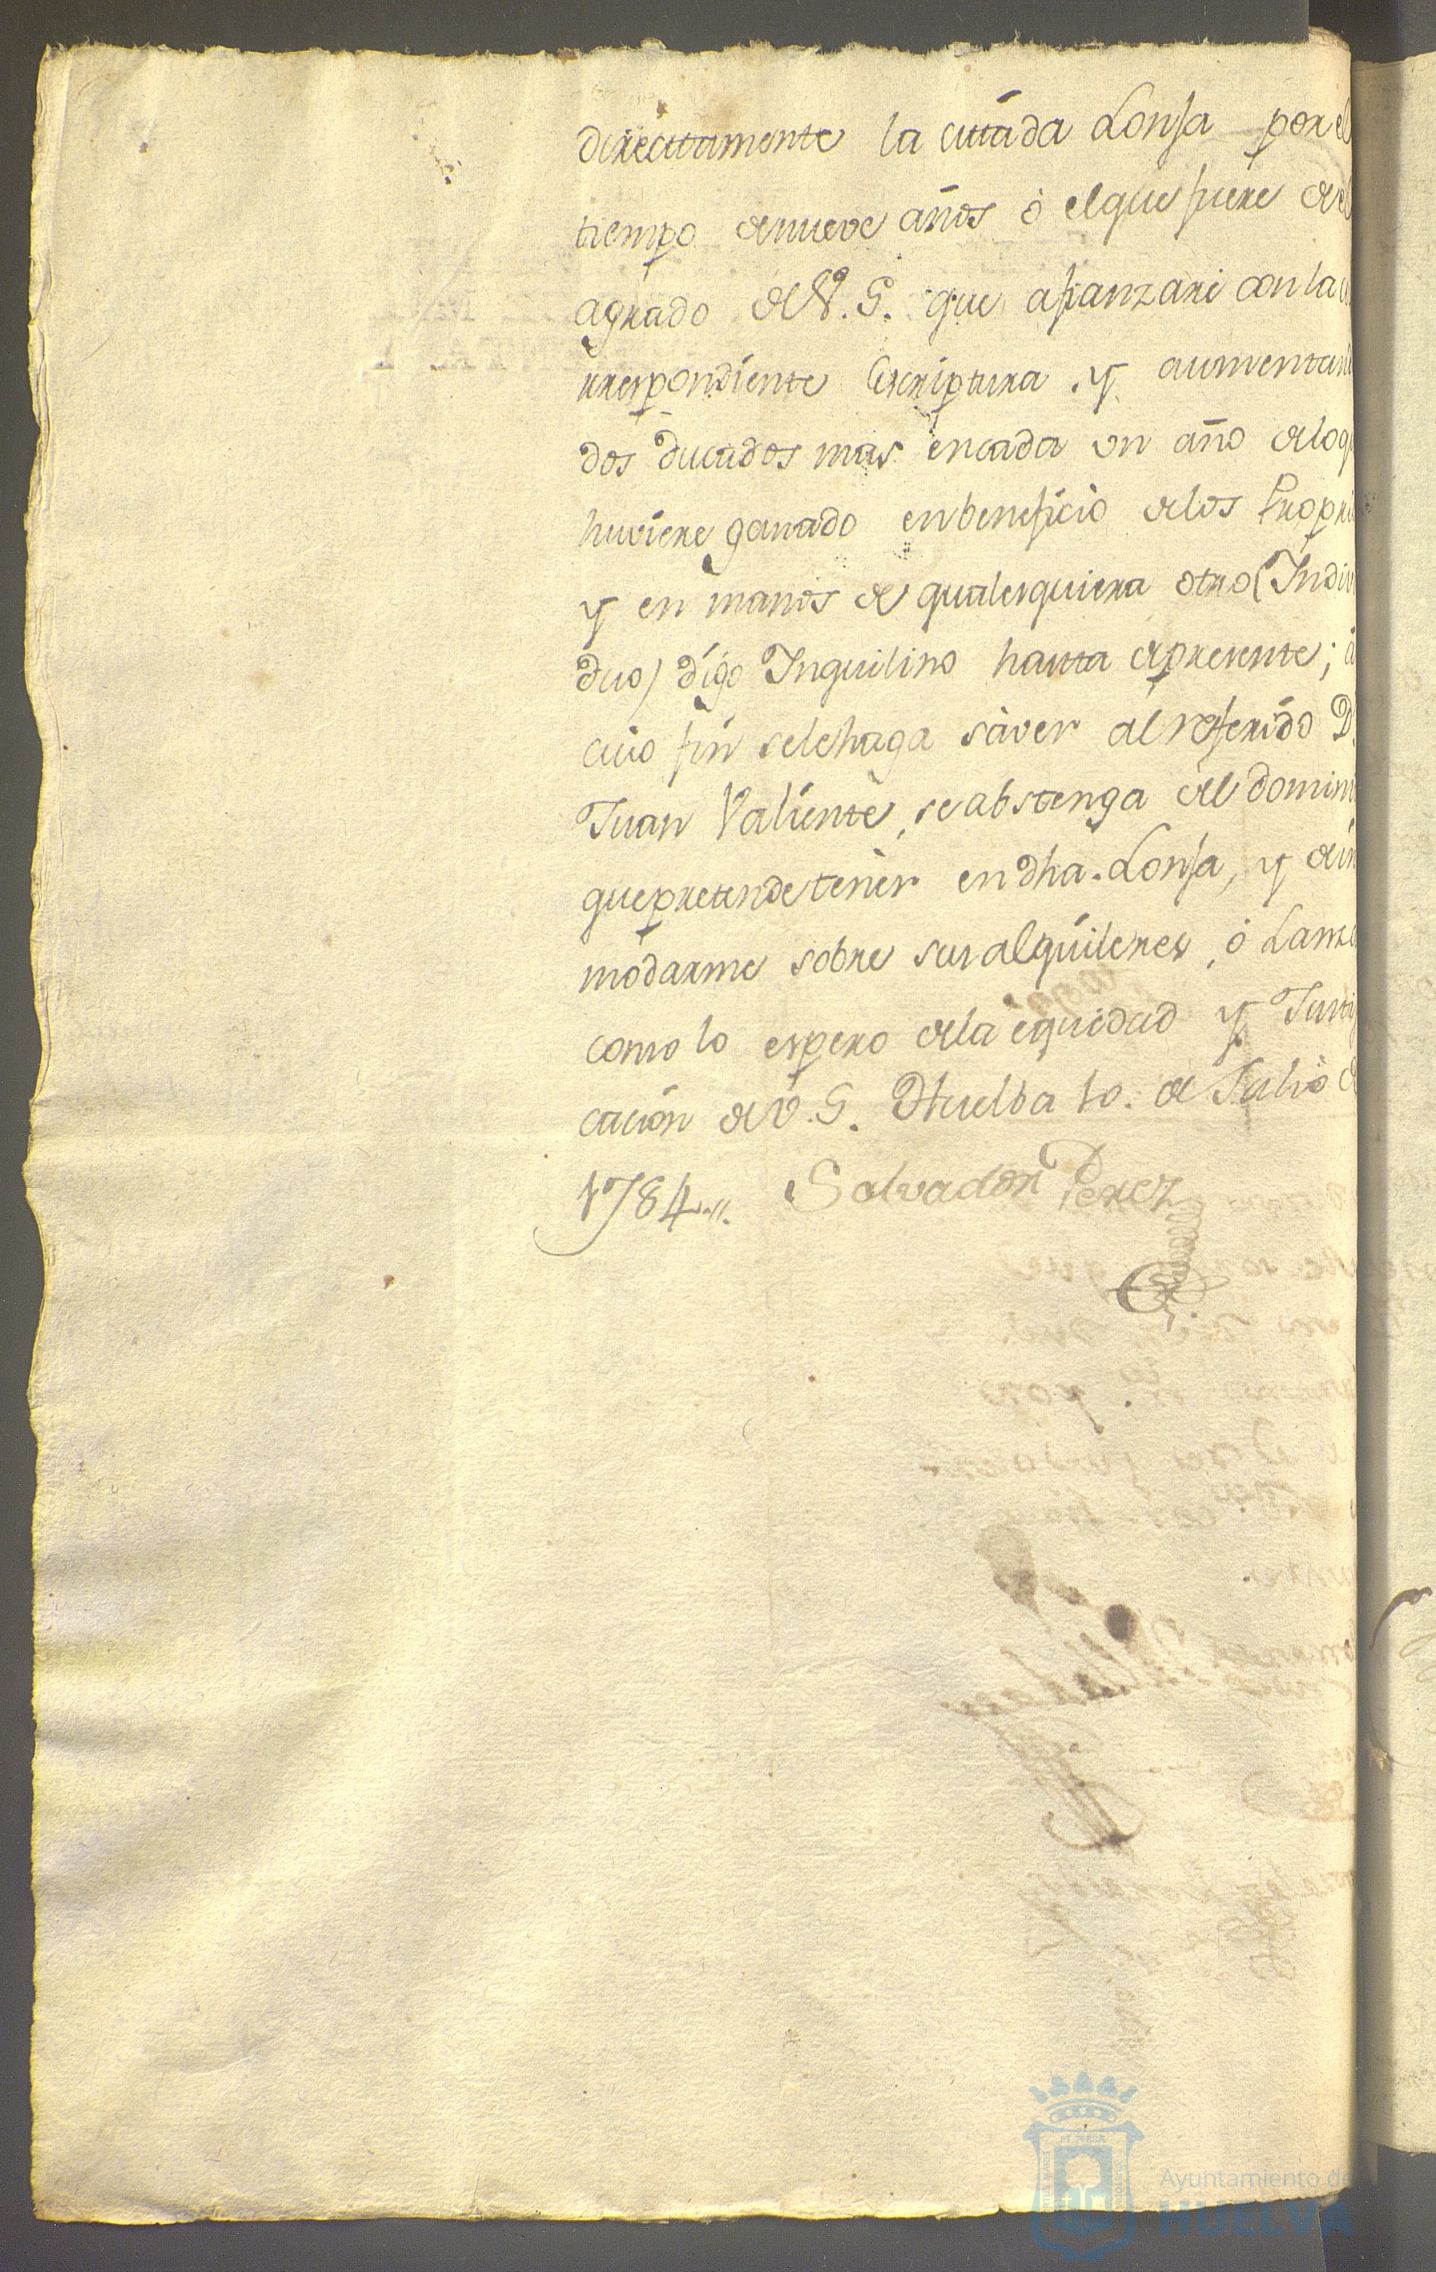 direcutamente la cittada Lonja por el
tiempo de nueve años ò el que fuere del
agrado de V. S. que afianzaré con la co
rrespondiente Escriptura y aumentaré
dos ducados mas en cada un año de loq
huviere ganado en beneficio de los Propri
y en manos de qualesquiera otro (Indivi
duo) digo Inquilino hasta el presente; à
cuio fin se le haga sàver al referido D.
Juan Valiente, se abstenga del domini
que pretende tenèr en dha. Lonja, y de in
modarme sobre sus alquileres, ò Lanza
como lo espero de la equidad y Justifi
cación de V. S. Huelba 10. de Julio de
1784
Salvador Perez
Ayuntamiento de
HUELVA